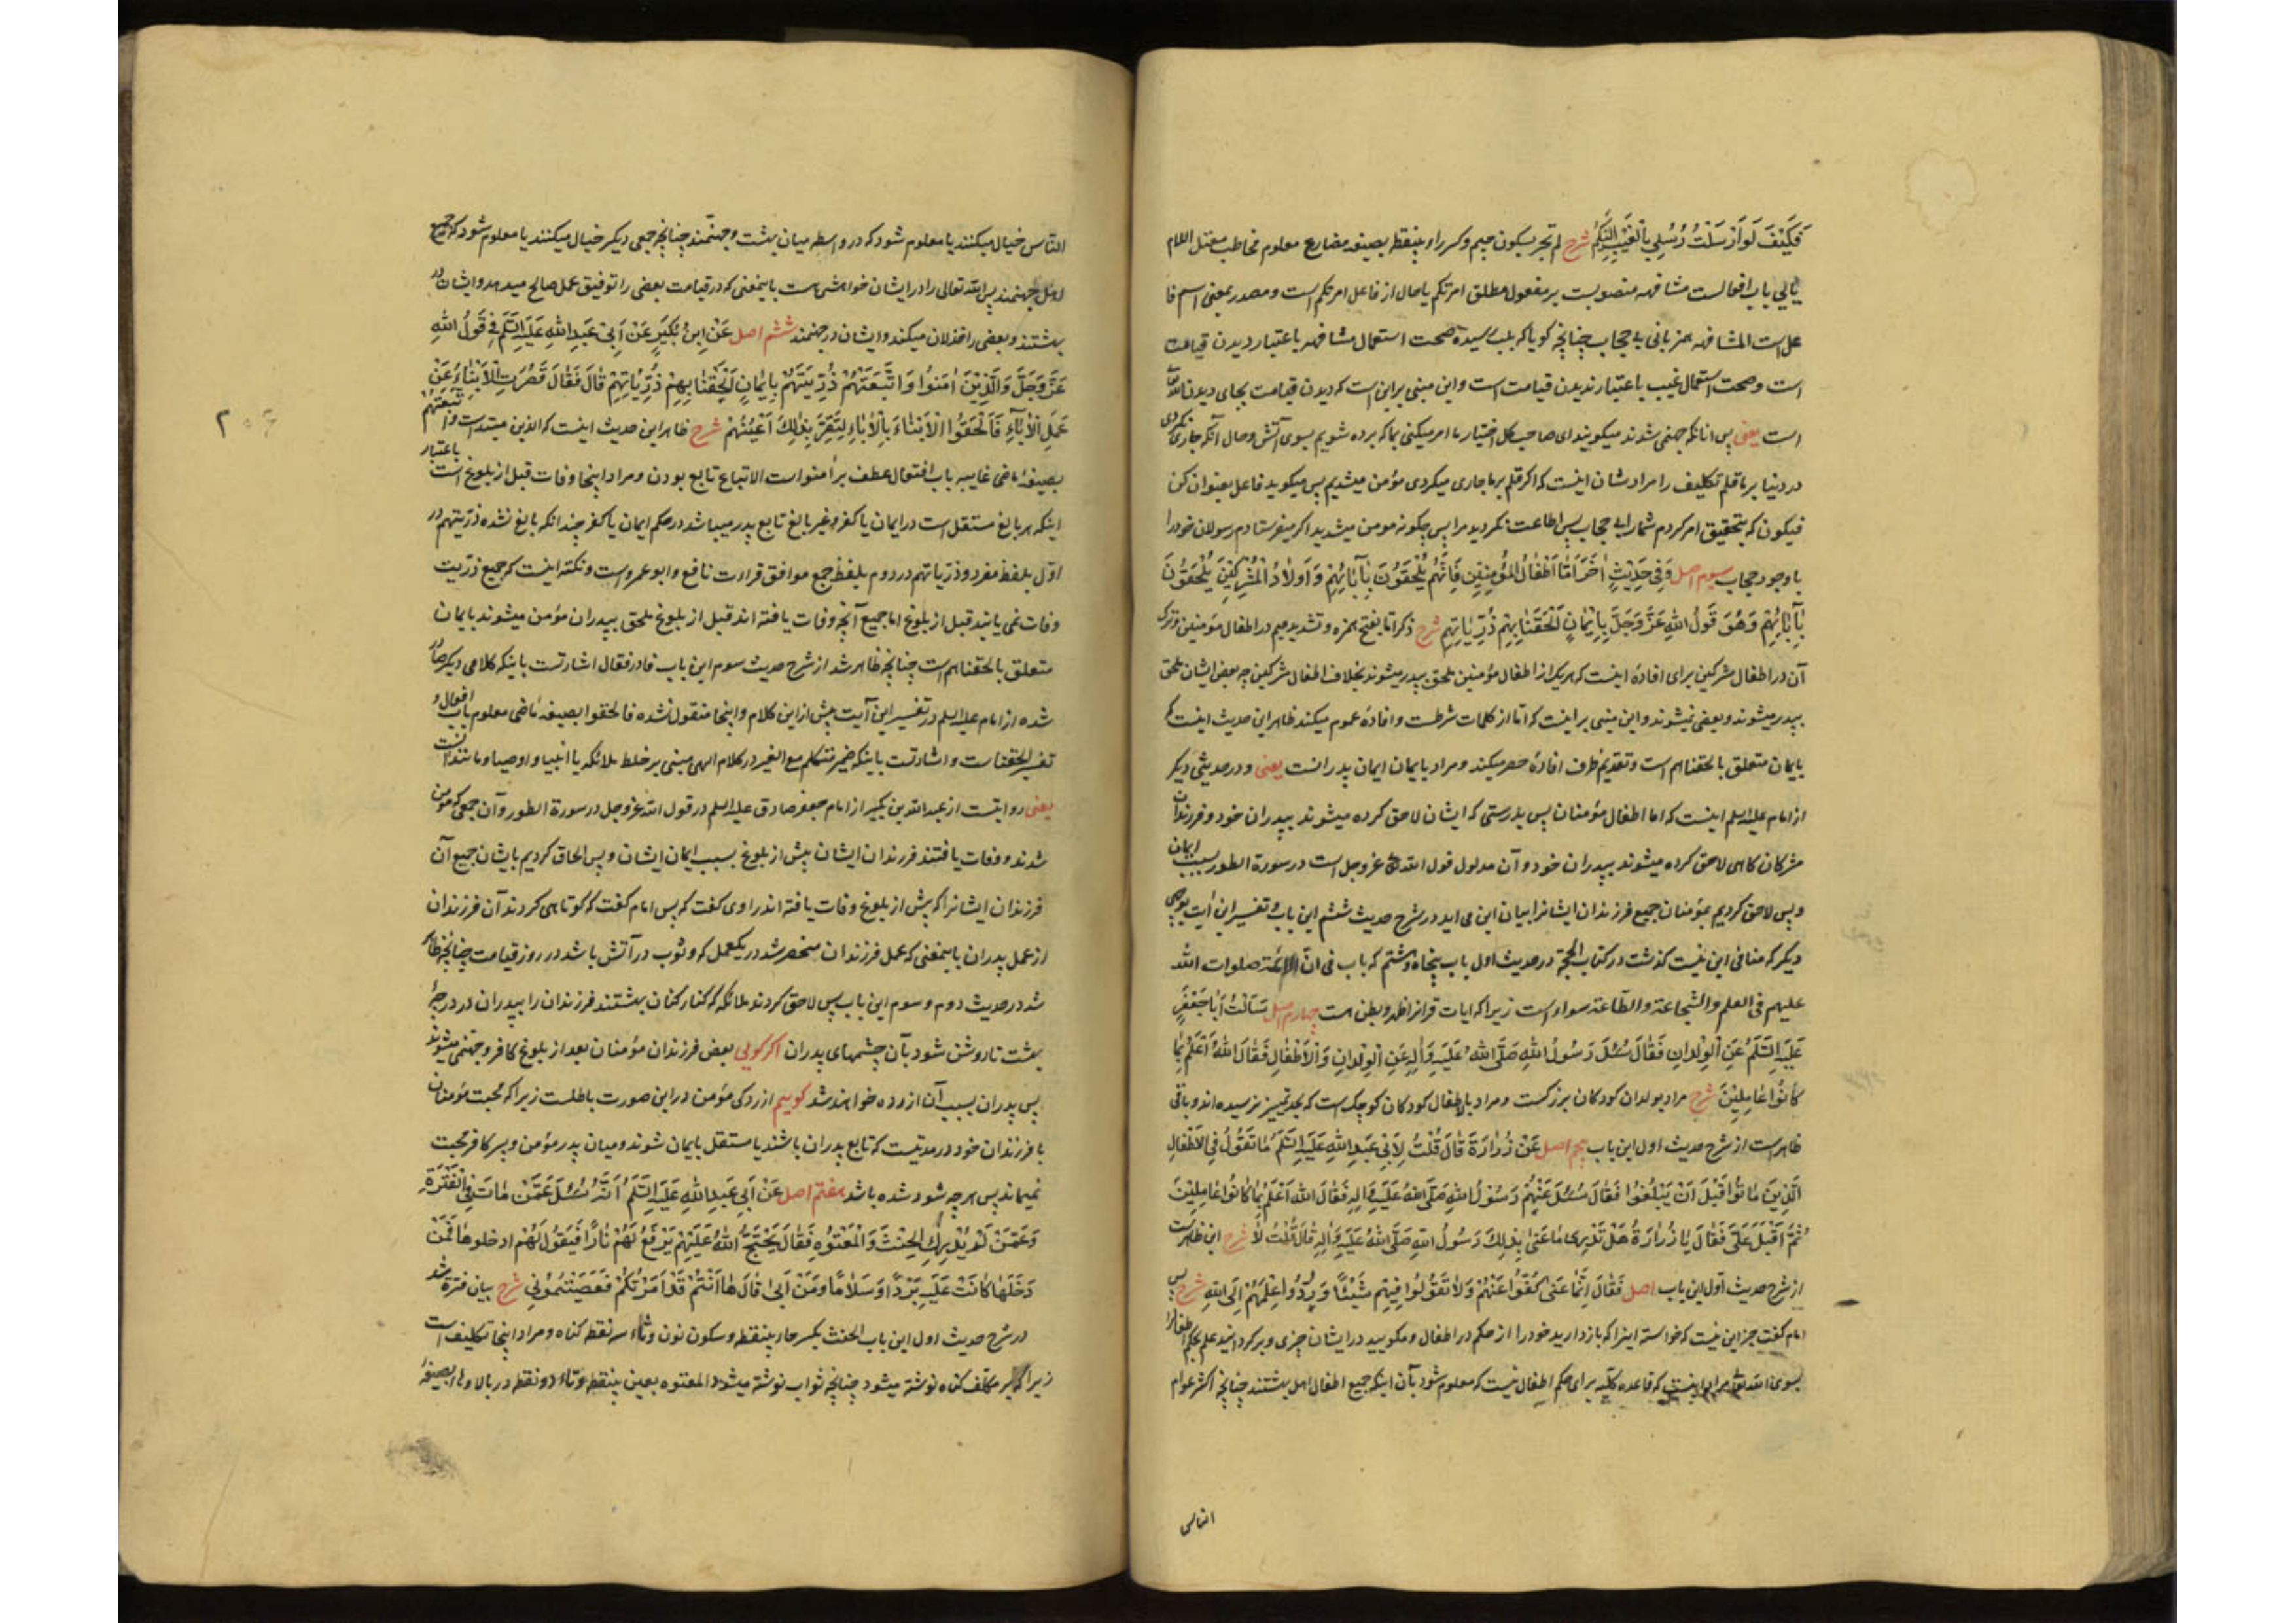 فَكَيْفَ لَوْ أَرْسَلْتُ رُسُلِي بِالْغَيْبِ إِلَيْكُمْ شرح لم تجر بسکون جیم و کسر راء بینقطه بصیغه مضارع معلوم مخاطب معتل اللام
یائی باب افعالست مشافهه منصوبست بر مفعول مطلق امرتکم یا حال از فاعل امرتکم است و مصدر بمعنی اسم فا
عل است المشافهه همزبانی بی حجاب چنانچه کویا که بلب رسیده صحت استعمال مشافهه باعتبار دیدن قیامت
است و صحت استعمال غیب باعتبار ندیدن قیامت است و این مبنی بر این است که دیدن قیامت بجای دیدن الله تعالی
است یعنی پس انانکه جهنمی شدند میکویند ای صاحب کل اختیار ما امر میکنی بما که برده شویم بسوی آتش و حال آنکه جاری نکردی
در دنیا بر ما قلم تکلیف را مرادشان اینست که اکر قلم بر ما جاری میکردی مؤمن میشدیم پس میکوید فاعل بعنوان کن
فیکون که بتحقیق امر کردم شما را بی حجاب پس اطاعت نکردید مرا پس چکونه مومن میشدید اکر میفرستادم رسولان خود را
با وجود حجاب سیوم اصل وَفِي حَدِيثٍ آخَرَ أَمَّا أَطْفَالُ الْمُؤْمِنِينَ فَإِنَّهُمْ يُلْحَقُونَ بِآبَائِهِمْ وَأَوْلَادُ الْمُشْرِكِينَ يُلْحَقُونَ
بِآبَائِهِمْ وَهُوَ قَوْلُ اللهِ عَزَّ وَجَلَّ بِإِيمَانٍ أَلْحَقْنَا بِهِمْ ذُرِّيَّاتِهِمْ شرح ذکر اما بفتح همزه و تشدید میم در اطفال مؤمنین و ترک
آن در اطفال مشرکین برای افادهٔ اینست که هریک از اطفال مؤمنین ملحق بپدر میشوند بخلاف اطفال مشرکین چه بعض ایشان ملحق
بپدر میشوند و بعضی نمیشوند و این مبنی بر اینست که اما از کلمات شرطست و افادهٔ عموم میکند ظاهر این حدیث اینست که
بایمان متعلق بالحقنا بهم است و تقدیم ظرف افادهٔ حصر میکند و مراد بایمان ایمان پدرانست یعنی و در حدیثی دیکر
از امام علیه السلم اینست که اما اطفال مؤمنان پس بدرستی که ایشان لاحق کرده میشوند بپدران خود و فرزندان
مشرکان کاهی لاحق کرده میشوند بپدران خود و آن مدلول قول الله عز وجل است در سورة الطور بسبب ایمان
و پس لاحق کردیم بمؤمنان جمیع فرزندان ایشانرا بیان این می اید در شرح حدیث ششم این باب و تفسیر این آیت بوجهی
دیکر که منافی این نیست کذشت در کتاب الحجة در حدیث اول باب پنجاه و هشتم که باب فی ان الائمة صلوات الله
علیهم فی العلم والشجاعة والطاعة سواء است زیرا که ایات قرانرا ظهر و بطن هست چهارم اصل سَأَلْتُ أَبَا جَعْفَرٍ
عَلَيْهِ السَّلَمُ عَنِ الْوِلْدَانِ فَقَالَ سُئِلَ رَسُولُ اللهِ صَلَّى اللهُ عَلَيْهِ وَآلِهِ عَنِ الْوِلْدَانِ وَالْأَطْفَالِ فَقَالَ اللهُ أَعْلَمُ بِمَا
كَانُوا عَامِلِينَ شرح مراد بولدان کودکان بزرکست و مراد باطفال کودکان کوچک است که بحد تمییز نرسیده اند و باقی
ظاهر است از شرح حدیث اول این باب پنجم اصل عَنْ زُرَارَةَ قَالَ قُلْتُ لِأَبِي عَبْدِ اللهِ عَلَيْهِ السَّلَمُ مَا تَقُولُ فِي الْأَطْفَالِ
الَّذِينَ مَاتُوا قَبْلَ أَنْ يَبْلُغُوا فَقَالَ سُئِلَ عَنْهُمْ رَسُولُ اللهِ صَلَّى اللهُ عَلَيْهِ وَآلِهِ فَقَالَ اللهُ أَعْلَمُ بِمَا كَانُوا عَامِلِينَ
ثُمَّ أَقْبَلَ عَلَيَّ فَقَالَ يَا زُرَارَةُ هَلْ تَدْرِي مَا عَنَى بِذَلِكَ رَسُولُ اللهِ صَلَّى اللهُ عَلَيْهِ وَآلِهِ قَالَ قُلْتُ لَا شرح این ظاهرست
از شرح حدیث اول این باب اصل فَقَالَ إِنَّمَا عَنَى كُفُّوا عَنْهُمْ وَلَا تَقُولُوا فِيهِمْ شَيْئًا وَرُدُّوا عِلْمَهُمْ إِلَى اللهِ شرح پس
امام کفت جز این نیست که خواسته اینرا که باز دارید خود را از حکم در اطفال و مکویید در ایشان چیزی و برکردانید علم بحکم اطفال را
بسوی الله تعالی مراد اینست که قاعده کلیه برای حکم اطفال نیست که معلوم شود بآن اینکه جمیع اطفال اهل بهشتند چنانچه اکثر عوام
الناس
الناس خیال میکنند یا معلوم شود که در واسطه میان بهشت و جهنمند چنانچه جمعی دیکر خیال میکنند یا معلوم شود که جمیع
اهل جهنمند پس الله تعالی را در ایشان خواهشی هست باینمعنی که در قیامت بعضی را توفیق عمل صالح میدهد و ایشان در
بهشتند و بعضی را خذلان میکند و ایشان در جهنمند ششم اصل عَنْ ابْنِ بُكَيْرٍ عَنْ أَبِي عَبْدِ اللهِ عَلَيْهِ السَّلَمُ فِي قَوْلِ اللهِ
عَزَّ وَجَلَّ وَالَّذِينَ آمَنُوا وَاتَّبَعَتْهُمْ ذُرِّيَّتُهُمْ بِإِيمَانٍ أَلْحَقْنَا بِهِمْ ذُرِّيَّاتِهِمْ قَالَ فَقَالَ قَصُرَتِ الْأَبْنَاءُ عَنْ
عَمَلِ الْآبَاءِ فَأَلْحَقُوا الْأَبْنَاءَ بِالْآبَاءِ لِتَقَرَّ بِذَلِكَ أَعْيُنُهُمْ شرح ظاهر این حدیث اینست که الذین مبتداست و اتبعتهم
بصیغهٔ ماضی غایبه باب افتعال عطف بر آمنوا است الاتباع تابع بودن و مراد اینجا وفات قبل از بلوغ است باعتبار
اینکه هر بالغ مستقل است در ایمان یا کفر و غیر بالغ تابع پدر میباشد در حکم ایمان یا کفر چندانکه بالغ نشده ذریتهم در
اول بلفظ مفرد و ذریاتهم در دوم بلفظ جمع موافق قراءت نافع و ابو عمرو است و نکته اینست که جمیع ذریت
وفات نمی یابند قبل از بلوغ اما جمیع آنچه وفات یافته اند قبل از بلوغ ملحق بپدران مؤمن میشوند بایمان
متعلق بالحقنا بهم است چنانچه ظاهر شد از شرح حدیث سوم این باب فا در فقال اشارتست باینکه کلامی دیکر صادر
شده از امام علیه السلم در تفسیر این آیت پیش از این کلام و اینجا منقول نشده فالحقوا بصیغه ماضی معلوم باب افعال و
تفسیر الحقنا ست و اشارتست باینکه ضمیر متکلم مع الغیر در کلام الهی مبنی بر خلط ملائکه یا انبیا و اوصیا و مانند آنست
یعنی روایتست از عبد الله بن بکیر از امام جعفر صادق علیه السلم در قول الله عز وجل در سورة الطور و آن جمعی که مؤمن
شدند و وفات یافتند فرزندان ایشان پیش از بلوغ بسبب ایمان ایشان و پس الحاق کردیم بایشان جمیع آن
فرزندان ایشانرا که پیش از بلوغ وفات یافته اند راوی کفت که پس امام کفت که کوتاهی کردند آن فرزندان
از عمل پدران باینمعنی که عمل فرزندان منحصر شد در یکعمل که وثوب در آتش باشد در روز قیامت چنانچه ظاهر
شد در حدیث دوم و سوم این باب پس لاحق کردند ملائکه که کارکنان بهشتند فرزندان را بپدران در درجهٔ
بهشت تا روشن شود بآن چشمهای پدران اکر کویی بعض فرزندان مؤمنان بعد از بلوغ کافر و جهنمی میشوند
پس پدران بسبب آن ازرده خواهند شد کوییم ازردکی مؤمن در این صورت باطلست زیرا که محبت مؤمنان
با فرزندان خود در مدتیست که تابع پدران باشند یا مستقل بایمان شوند و میان پدر مؤمن و پسر کافر محبت
نمیماند پس هر چه شود شده باشد هفتم اصل عَنْ أَبِي عَبْدِ اللهِ عَلَيْهِ السَّلَمُ أَنَّهُ سُئِلَ عَمَّنْ مَاتَ فِي الْفَتْرَةِ
وَعَمَّنْ لَمْ يُدْرِكِ الْحِنْثَ وَالْمَعْتُوهِ فَقَالَ يَحْتَجُّ اللهُ عَلَيْهِمْ يَرْفَعُ لَهُمْ نَارًا فَيَقُولُ لَهُمْ ادخلوها فَمَنْ
دَخَلَهَا كَانَتْ عَلَيْهِ بَرْدًا وَسَلَامًا وَمَنْ أَبَى قَالَ هَا أَنْتُمْ قَدْ أَمَرْتُكُمْ فَعَصَيْتُمُونِي شرح بیان فترة شد
در شرح حدیث اول این باب الحنث بکسر حاء بینقطه و سکون نون و ثاء سه نقطه کناه و مراد اینجا تکلیف است
زیرا که بر مکلف کناه نوشته میشود چنانچه ثواب نوشته میشود المعتوه بعین بینقطه و تاء دو نقطه در بالا و هاء بصیغه